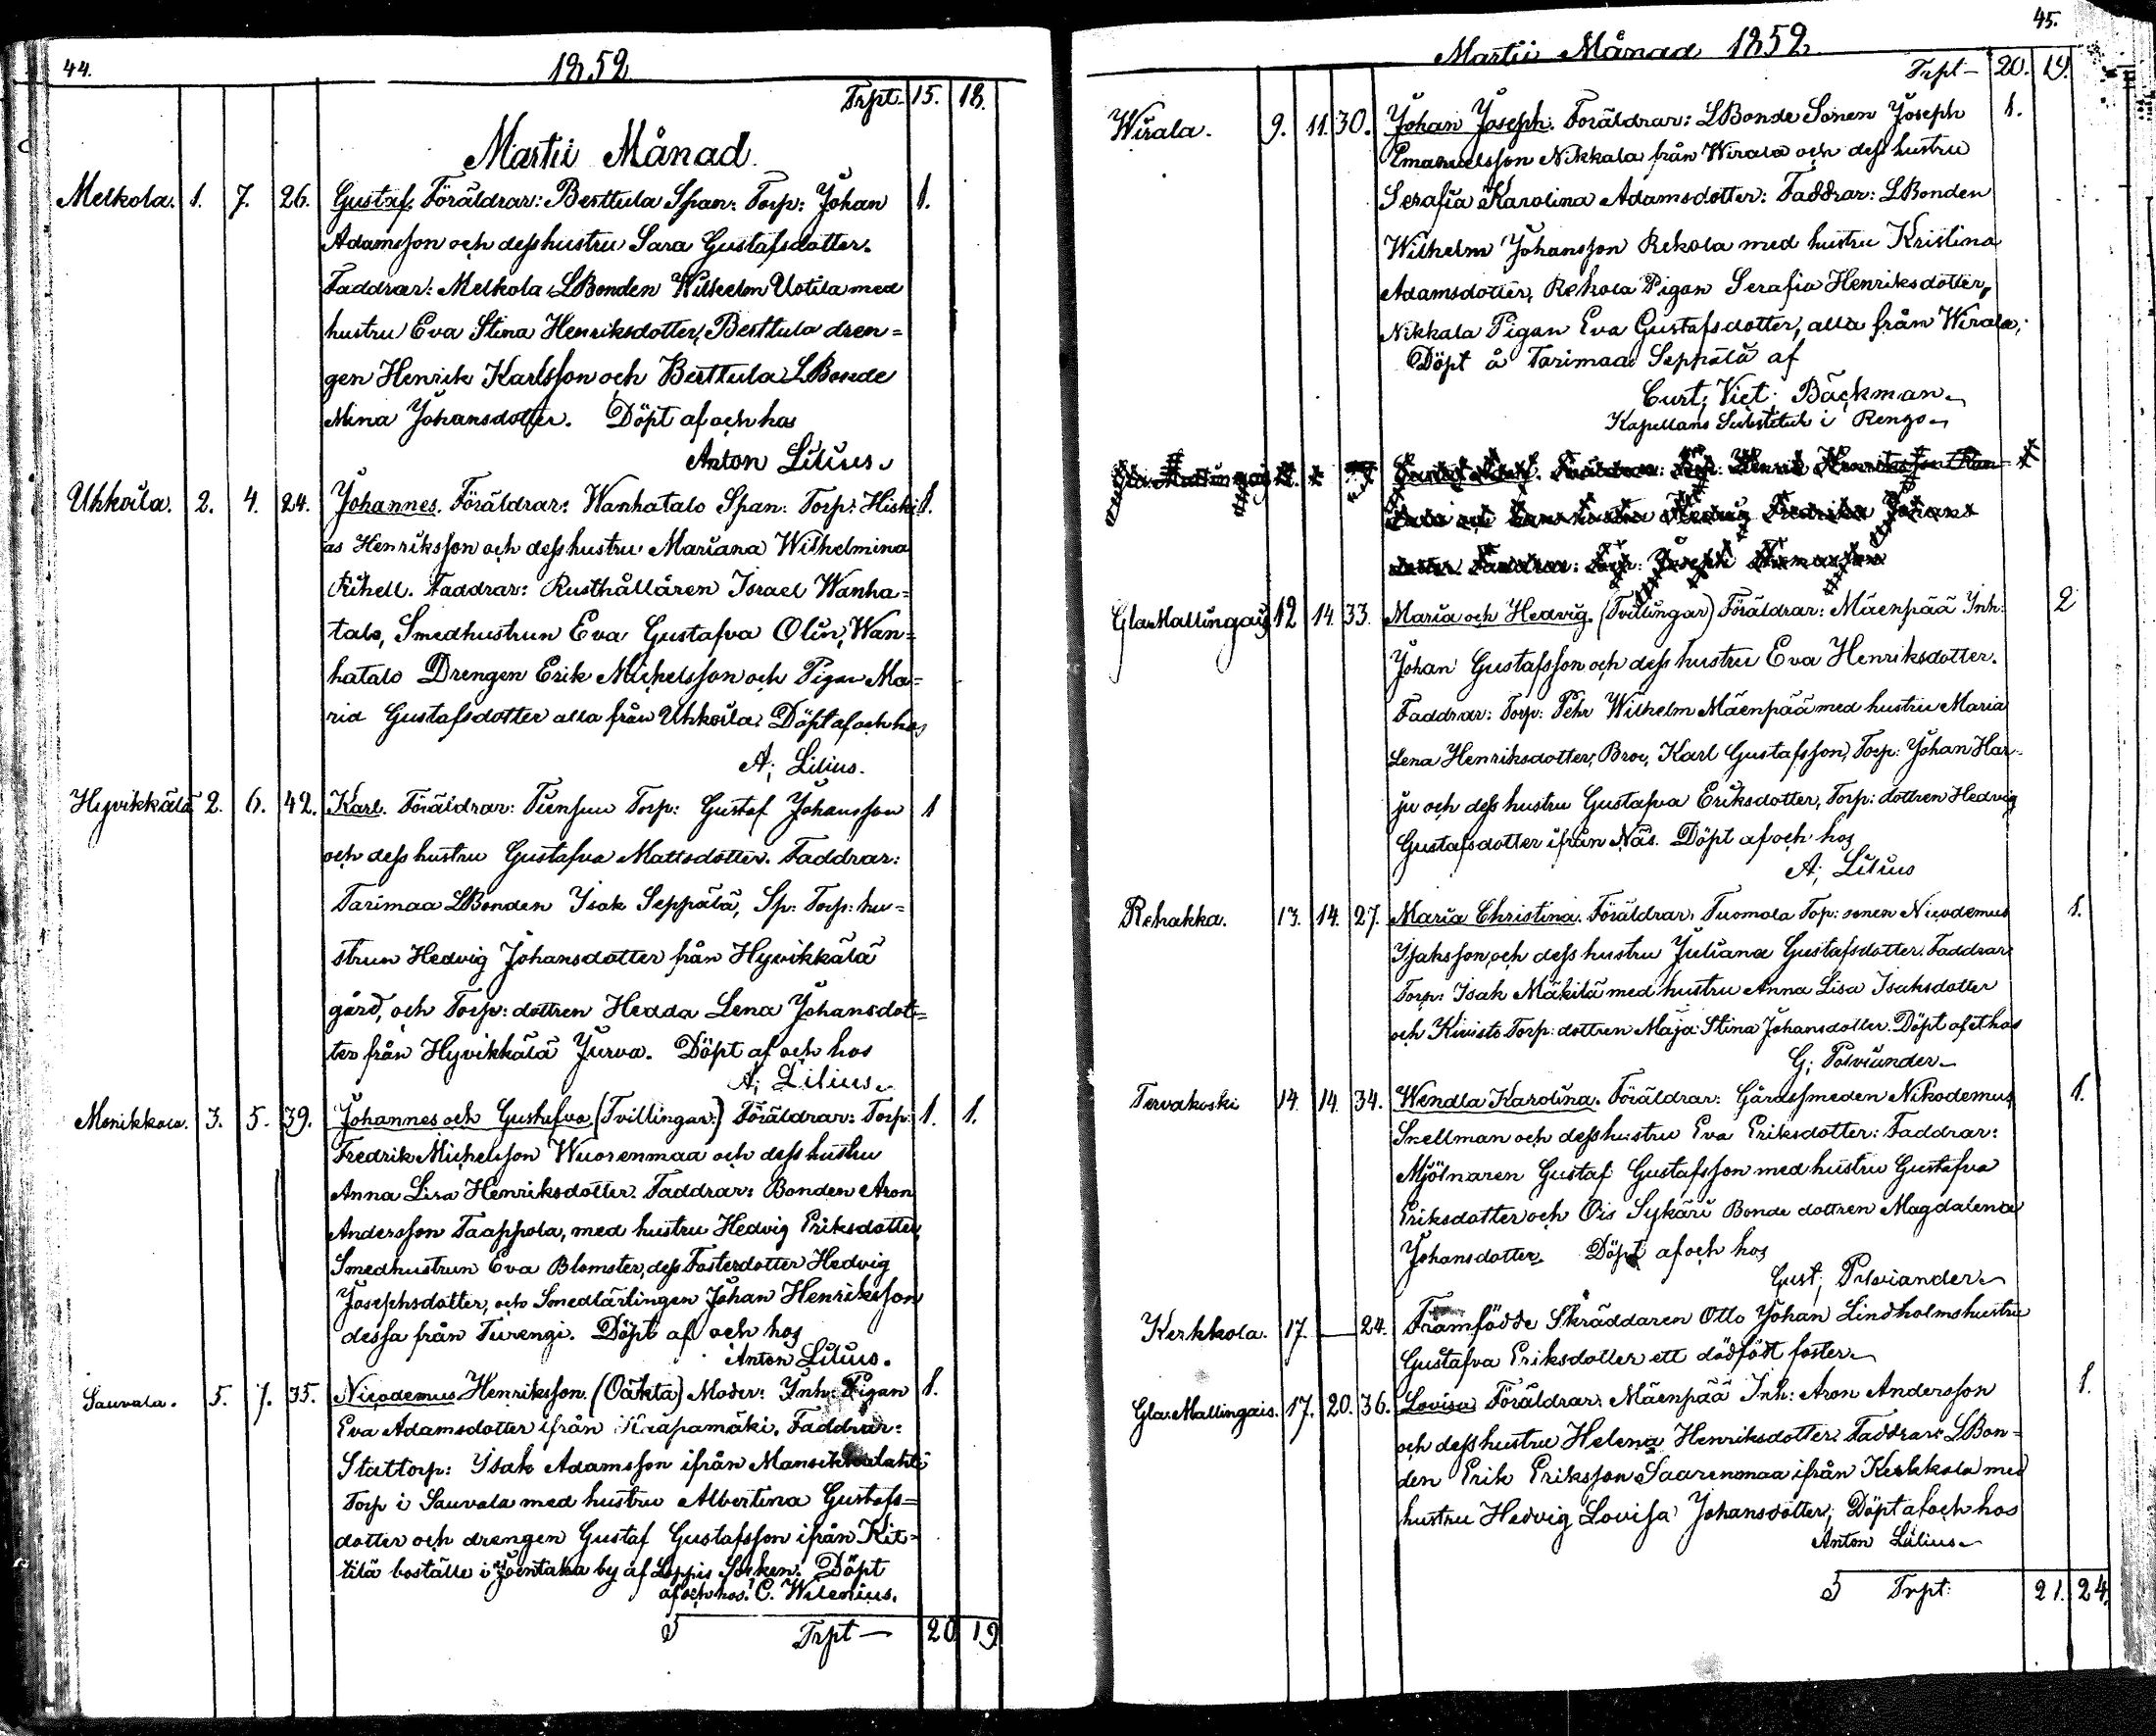 44.
1852
Trpt- 15. 18.
Martii Månad
Melkola. 1. 7. 26. Gustaf. Föräldrar: Berttula Span: Torp: Johan 1.
Adamsson och dess hustru Sara Gustafsdotter.
Faddrar: Melkola LBonden Wilhelm Uotila med
hustru Eva Stina Henriksdotter, Berttula dren=
gen Henrik Karlsson och Berttula LBonde
Mina Johansdotter. Döpt af och hos
Anton Lilius.
Uhkoila. 2. 4. 24. Johannes. Föräldrar: Wanhatalo Span: Torp: Hiski 1.
as Henriksson och dess hustru Mariana Wilhelmina
Rihell. Faddrar: Rusthållaren Israel Wanha=
talo, Smedhustrun Eva Gustafva Olin, Wan=
hatalo Drengen Erik Michelsson och Pigan Ma=
ria Gustafsdotter alla från Uhkoila; Döpt af och hos
A; Lilius.
Hyvikkälä 2. 6. 42. Karl. Föräldrar: Torp: Gustaf Johansson 1
och dess hustru Gustafva Mattsdotter. Faddrar:
Tarimaa LBonden Isak Seppälä, Sp: Torp: hu=
strun Hedvig Johansdotter från Hyvikkälä
gård, och Torp: dottren Hedda Lena Johansdot=
ter från Hyvikkälä Jurva. Döpt af och hos
A; Lilius.
Monikkala. 3. 5. 39. Johannes och Gustafva. (Tvillingar:) Föräldrar: Torp: 1. 1.
Fredrik Michelsson Wuorenmaa och dess hustru
Anna Lisa Henriksdotter. Faddrar: Bonden Aron
Andersson Taappola, med hustru Hedvig Eriksdotter,
Smedhustrun Eva Blomster, dess Fosterdotter Hedvig
Josephsdotter, och Smedlärlingen Johan Henriksson
dessa från Turengi. Döpt af och hos
Anton Lilius.
Sauvala. 5. 7. 35. Nicodemus Henriksson. (Oäkta) Moder: Inh: Pigan 1.
Eva Adamsdotter ifrån Räapamäki. Faddrar:
Stattorp: Isak Adamsson ifrån Mansikkalahti
Torp i Sauvala med hustru Albertina Gustafs=
dotter och drengen Gustaf Gustafsson ifrån Kit=
tilä boställe i Joentaka by af Loppis Socken. Döpt
af och hos. C. Wilenius.
Trpt— 20 19
45.
Martii Månad 1852
Trpt— 20. 19.
Wirala. 9. 11. 30. Johan Joseph. Föräldrar: LBonde Sonen Joseph 1.
Emanuelsson Nikkala från Wirala och dess hustru
Serafia Karolina Adamsdotter: Faddrar: LBonden
Wilhelm Johansson Rekola med hustru Kristina
Adamsdotter, Rekola Pigan Serafia Henriksdotter,
Nikkala Pigan Eva Gustafsdotter, alla från Wirala;
Döpt å Tarimaa Seppälä af
Curt; Vict. Bäckman.
Kapellans Substitut i Rengo.
Gla Mallingais 12 14. 33. Maria och Hedvig. (Tvillingar) Föräldrar: Mäenpää Inh: 2
Johan Gustafsson och dess hustru Eva Henriksdotter.
Faddrar: Torp: Pehr Wilhelm Mäenpää med hustru Maria
Lena Henriksdotter, Bror, Karl Gustafsson, Torp: Johan Har-
ju och dess hustru Gustafva Eriksdotter, Torp: dottren Hedvig
Gustafsdotter ifrån Näs. Döpt af och hos
A; Lilius
Rehakka. 13. 14. 27. Maria Christina. Föräldrar: Tuomola Torp: sonen Nicodemus 1.
Isaksson, och dess hustru Juliana Gustafsdotter. Faddrar:
Torp: Isak Mäkilä med hustru Anna Lisa Isaksdotter
och Kivisto Torp: dottren Maja Stina Johansdotter. Döpt af et hos
G; Polviander.
Tervakoski 14. 14. 34. Wendla Karolina. Föräldrar: Gårdssmeden Nikodemus 1.
Snellman och dess hustru Eva Eriksdotter: Faddrar:
Mjölnaren Gustaf Gustafsson med hustru Gustafva
Eriksdotter och Ois Sykäri Bonde dottren Magdalena
Johansdotter. Döpt af och hos
Gust; Polviander.
Kerkkola. 17. — 24. Framfödde Skräddaren Otto Johan Lindholms hustru
Gustafva Eriksdotter ett dödfödt foster.
Gla Mallingais. 17. 20. 36. Lovisa Föräldrar: Mäenpää Inh: Aron Andersson 1.
och dess hustru Helena Henriksdotter. Faddrar: LBon=
den Erik Eriksson Saarenmaa ifrån Kerkkola med
hustru Hedvig Lovisa Johansdotter; Döpt af och hos
Anton Lilius.
Trpt: 21. 24.